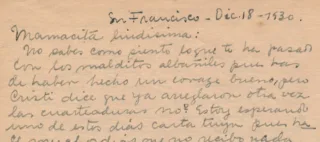 Sn. Francisco - Dic. 18 - 1930.
Mamacita lindísima:
No sabes como siento lo que te ha pasado
con los malditos albañiles pues has
de haber hecho un coraje bueno, pero
Cristi dice que ya arreglaron otra vez
las cuarteaduras no? Estoy esperando
uno de estos días carta tuya pues ha
que no recibo nada